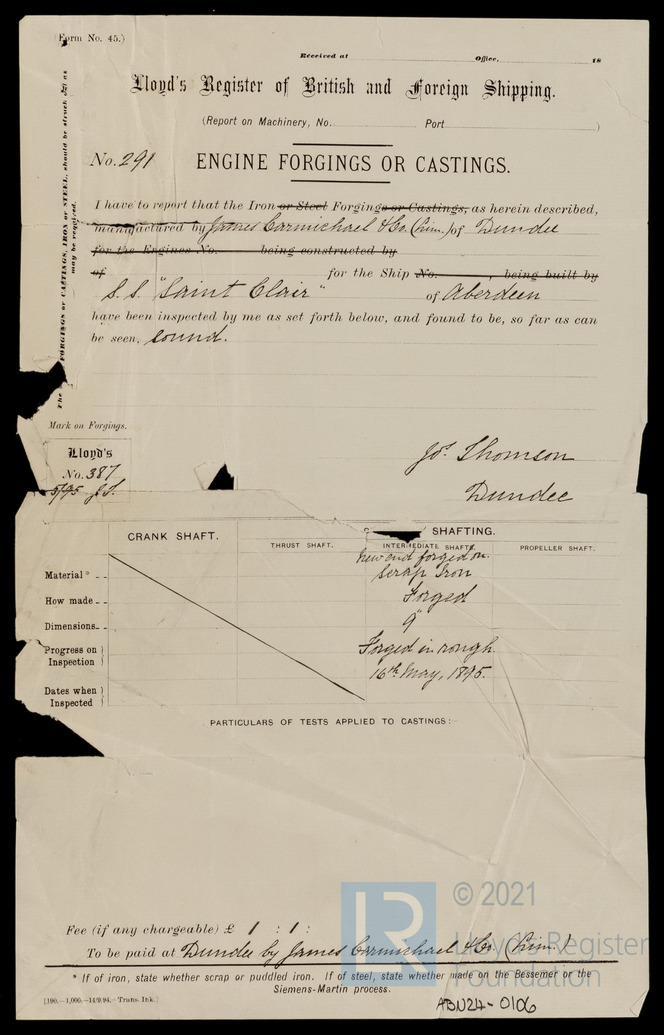 (Form No. 45.)
Received at Office, 18
Lloyd's Register of British and Foreign Shipping.
(Report on Machinery, No. Port )
No. 291 ENGINE FORGINGS OR CASTINGS.
I have to report that the Iron or Steel Forgings or Castings, as herein described,
manufactured by James Carmichael & Co. (Lim.) of Dundee
for the Engines No. being constructed by
of for the Ship No. , being built by
S.S. "Saint Clair" of Aberdeen
have been inspected by me as set forth below, and found to be, so far as can
be seen, sound.
The FORGINGS or CASTINGS, IRON or STEEL, should be struck out as
may be required.
Mark on Forgings.
Lloyd's
No. 387
5/95 J.T.
Jos. Thomson
Dundee
CRANK SHAFT. SHAFTING.
THRUST SHAFT. INTERMEDIATE SHAFTS. PROPELLER SHAFT.
New end forged on.
Material* Scrap Iron
How made Forged
Dimensions 9"
Progress on Inspection Forged in rough
16th May, 1895.
Dates when Inspected
PARTICULARS OF TESTS APPLIED TO CASTINGS:—
Fee (if any chargeable) £ 1 : 1 :
To be paid at Dundee by James Carmichael & Co. (Lim.)
* If of iron, state whether scrap or puddled iron. If of steel, state whether made on the Bessemer or the
Siemens-Martin process.
[190.—1,000.—14/9/94.—Trans. Ink.]
ABN24-0106
LR © 2021
Lloyd's Register
Foundation